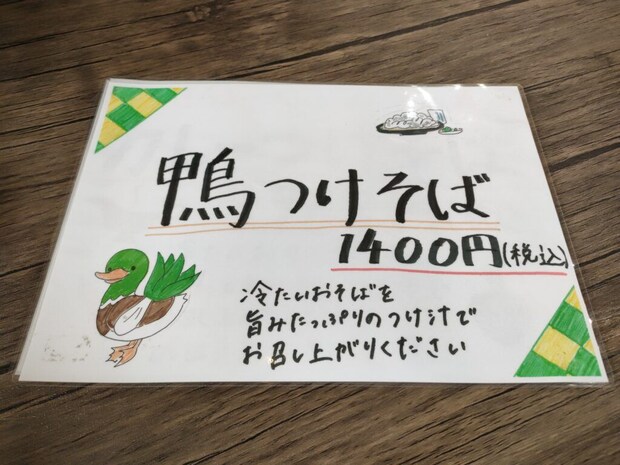 鴨つけそば
1400円(税込)
冷たいおそばを
旨みたっぷりのつけ汁で
お召し上がりください